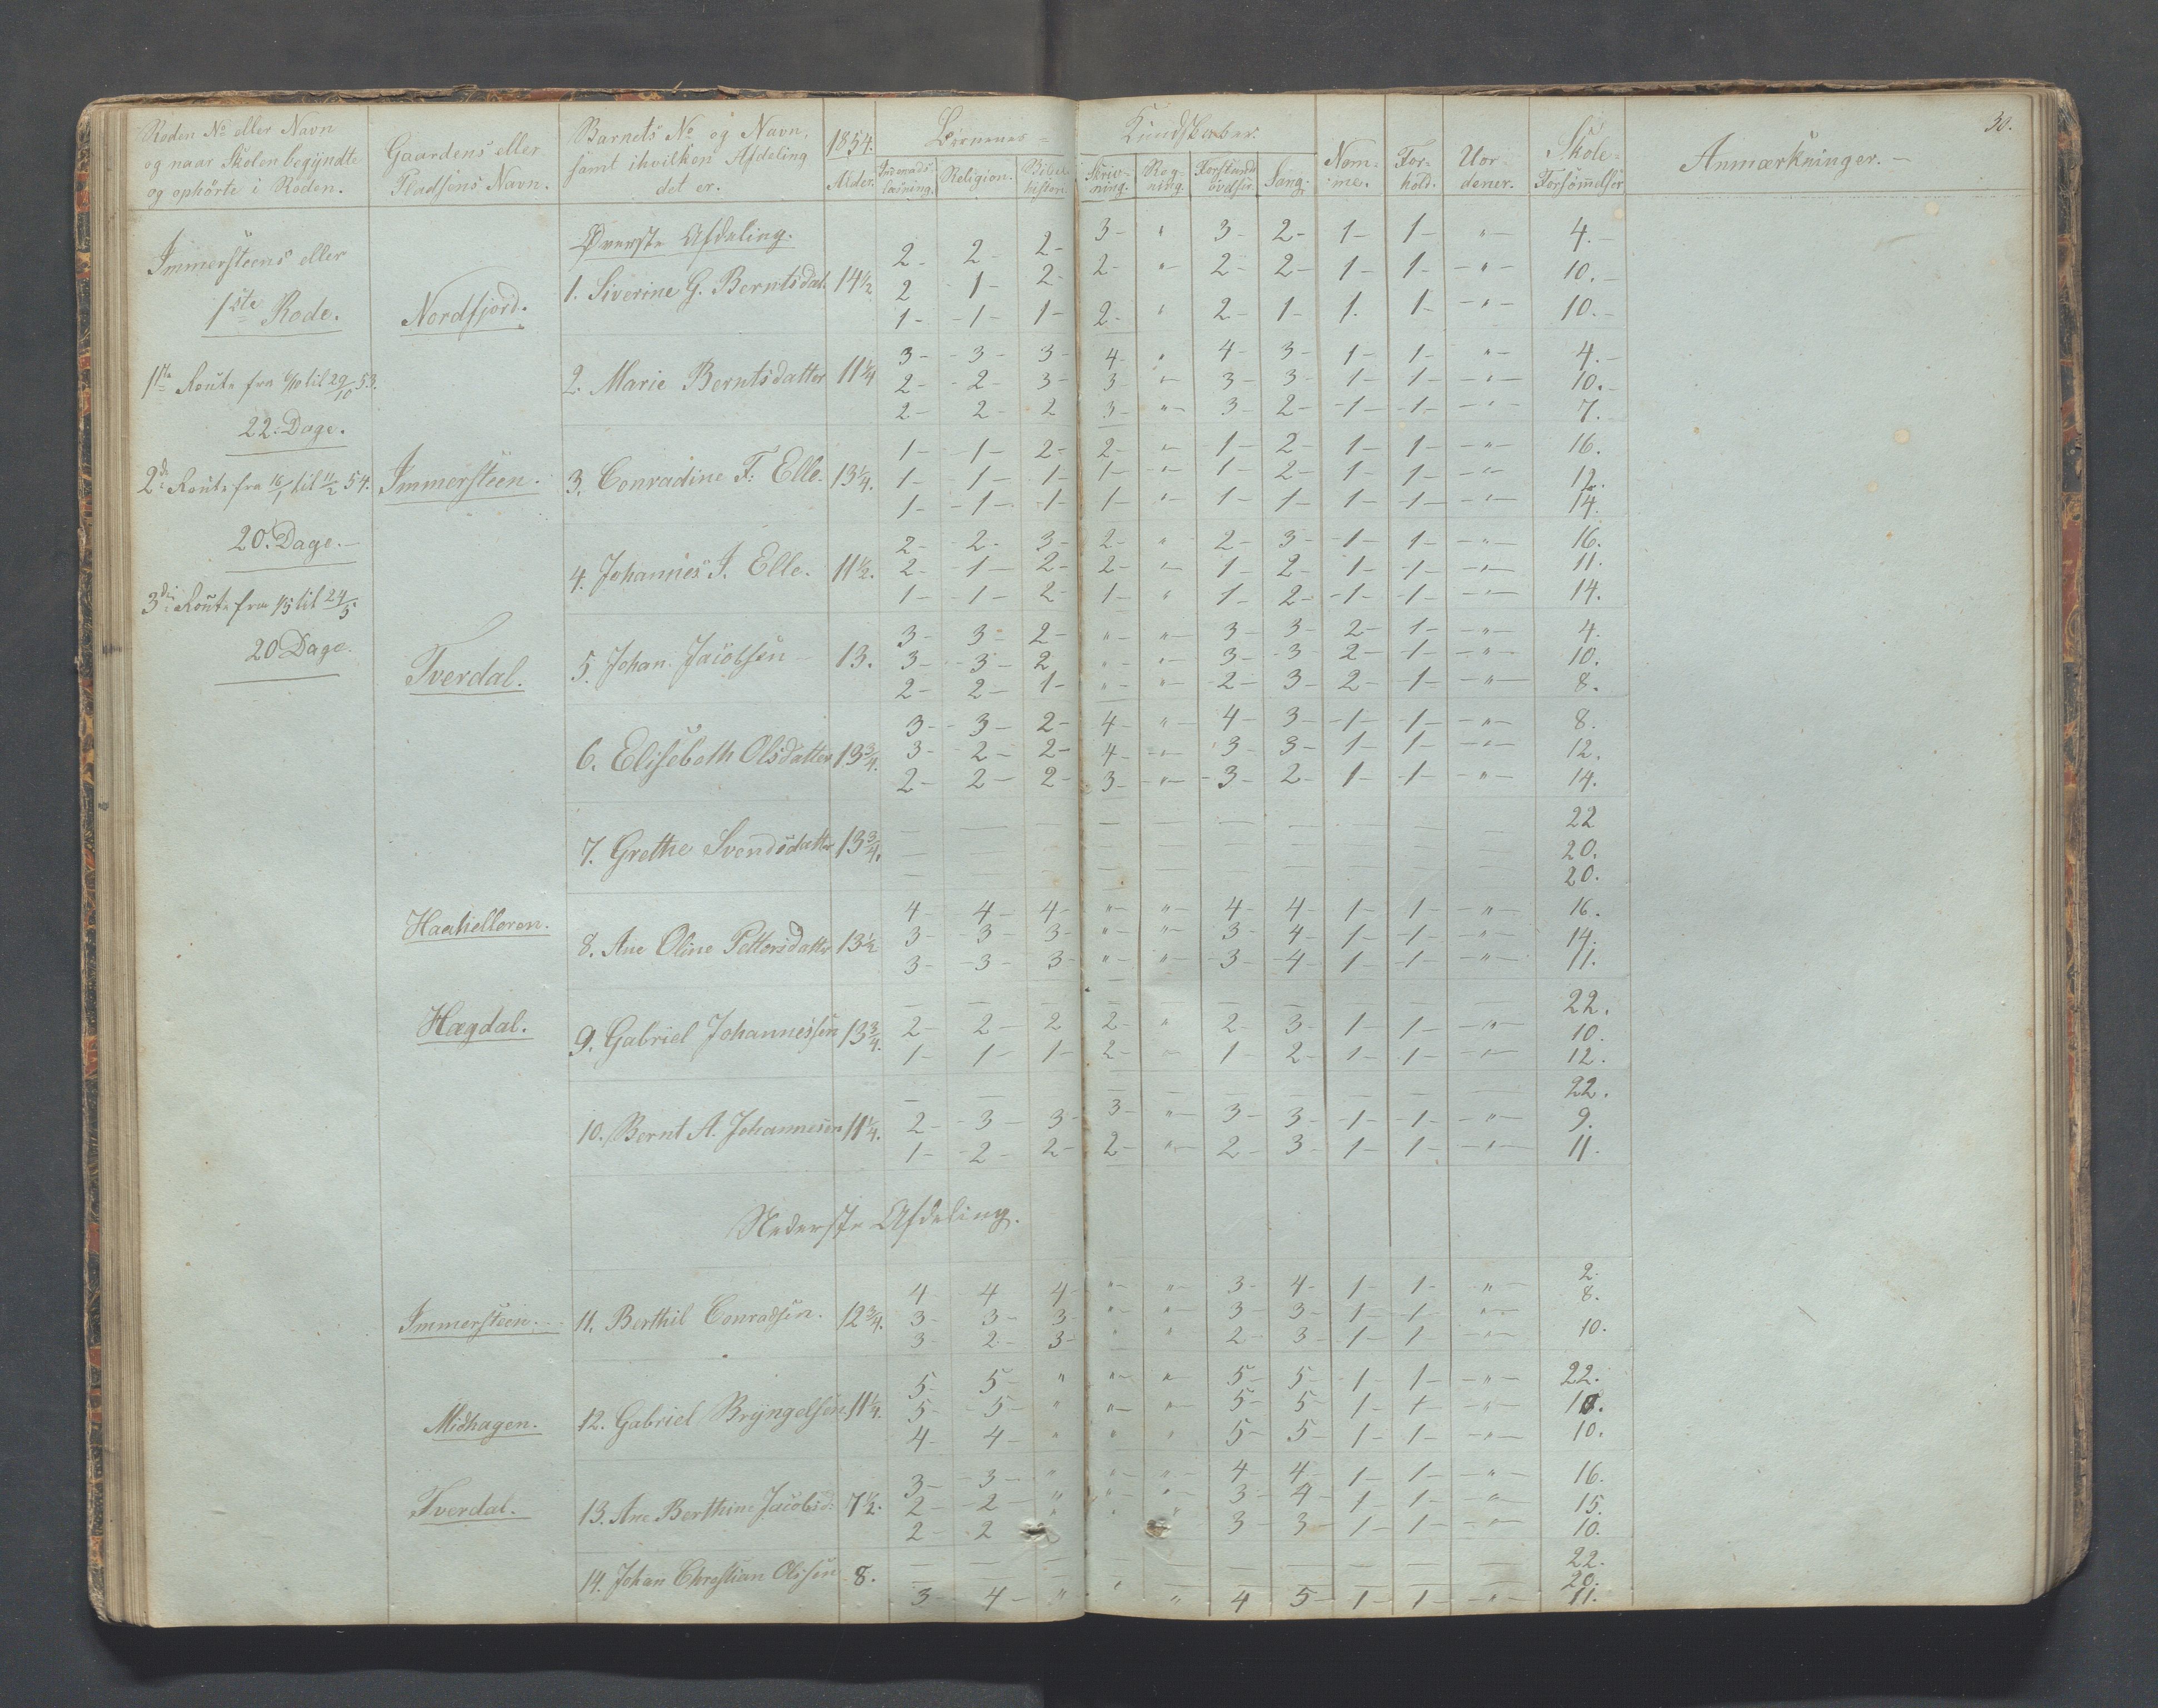 30.
Roden No eller Navn
og naar Skolen begyndte
og ophørte i Roden.
Gaardens eller
Pladsens Navn.
Barnets No og Navn,
samt ihvilken Afdeling
det er.
1854.
Alder.
Børnenes Kundskaber.
Indenads-
læsning.
Religion.
Bibel
historie
Skriv-
ning.
Reg-
ning.
Forstands
øvelser
Sang.
Nem-
me.
For-
hold.
Uor-
dener.
Skole-
Forsømmelser
Anmærkninger.
Immersteens eller
1ste Rode.
1ste Route fra til 29/10 53.
22. Dage.
2de Route fra 16/1 til 11/2 54.
20. Dage.
3die Route fra 1/5 til 24/5
20 Dage.
Øverste Afdeling.
Nordfjord.
1. Siverine G. Berntsdat. 14½
2 - 2 - 2 - 3 - " 3 - 2 - 1 - 1 - " - 4.
2 1 - 2 - 2 - " - 2 - 2 - 1 - 1 - " - 10.
1 - 1 - 1 - 2 - " 2 - 1 - 1. 1 - " - 10.
2. Marie Berntsdatter 11¼
3 - 3 - 3 - 4 - " 4 - 3 - 1 - 1 - " - 4.
2 - 2 - 3 - 3 - " - 3 - 3 - 1 - 1 - " - 10.
2 - 2 - 2 3 - " - 3 - 2 - 1 - 1 - " - 7.
Immersteen.
3. Conradine F. Elle. 13¼.
1 - 1 - 2 - 2 - " - 1 - 2 - 1 - 1 - " - 16.
1 - 1 - 1 - 1 - " - 1 - 2 - 1 - 1 - " - 12.
1 - 1 - 1 - 1 - " - 1 - 1 - 1 - 1 - " - 14.
4. Johannes J. Elle. 11½.
2 - 2 - 3 - 2 - " 2 - 3 - 1 - 1 - " - 16.
2 - 1 - 2 - 2 - " - 1 - 2 - 1 - 1 - " - 11.
1 - 1 - 2 - 1 - " 1 - 2 - 1 - 1 - " - 14.
Tverdal.
5. Johan Jacobsen 13.
3 - 3 - 2 - " - " - 3 - 3 - 2 - 1 - " - 4.
3 - 3 - 2 " - " - 3 - 3 - 2 - 1 - " - 10.
2 - 2 - 1 - " - " - 2 - 3 - 2 - 1 - " - 8.
6. Elisebeth Olsdatter 13¾.
3 - 3 - 2 - 4 - " - 4 - 3 - 1 - 1 - " - 8.
3 - 2 - 2 - 4 - " - 3 - 3 - 1 - 1 - " - 12.
2 - 2 - 2 - 3 - " - 3 - 2 - 1 - 1 - " - 14.
7. Grethe Svendsdatter 13¾.
— — — — — — — — — — 22
— — — — — — — — — — 20.
— — — — — — — — — — 20.
Haahelleren.
8. Ane Oline Pettersdatter 13½
4 - 4 - 4 - " - " - 4 - 4 - 1 - 1 - " - 16.
3 - 3 - 3 - " - " - 3 - 4 - 1 - 1 - " - 14.
3 - 3 - 3 - " - " - 3 - 4 - 1 - 1 - " - 11.
Hægdal.
9. Gabriel Johannessen 13¾.
— — — — — — — — — — 22.
2 - 2 - 2 2 - " 2 - 3 - 1 - 1 - " - 10.
1 - 1 - 1 - 2 - " - 1 - 2 - 1 - 1 - " - 12.
10. Bernt A. Johannesen 11¼.
— — — — — — — — — — 22.
2 - 3 - 3 - 3 - " - 3 - 3 - 1 - 1 - " - 9.
1 - 2 - 2 - 2 - " - 2 - 3 - 1 - 1 - " - 11.
Nederste Afdeling.
Immersteen.
11. Berthil Conradsen. 12¾.
4 - 4 4 - " - " - 3 - 4 - 1 - 1 - " - 2.
3 - 3 - 3 - " - " - 3 - 3 - 1 - 1 - " - 8.
3 - 2 - 3 - " " 2 - 3 - 1 - 1 - " - 10.
Midhagen.
12. Gabriel Bryngelsen 11¼.
5 - 5 - " " - " - 5 - 5 - 1 - 1 - " - 22.
5 - 5 - " " - " - 5 - 5 - 1 - 1 - " - 10.
4 - 4 - " " " 5 - 5 - 1 - 1 - " - 10.
Tverdal.
13. Ane Berthine Jacobsd: 7½.
3 - 3 - " " - " - 4 - 4 - 1 - 1 - " - 16.
2 - 2 - " " - " - 3 - 4 - 1 - 1 - " - 15.
2 - 2 " " 3 - 3 - 1 - 1 - " - 10.
14. Johan Christian Olssen 8.
— — — — — — — — — — 22.
— — — — — — — — — — 20.
3 - 4 - " " " 4 5 - 1 - 1 - " - 11.